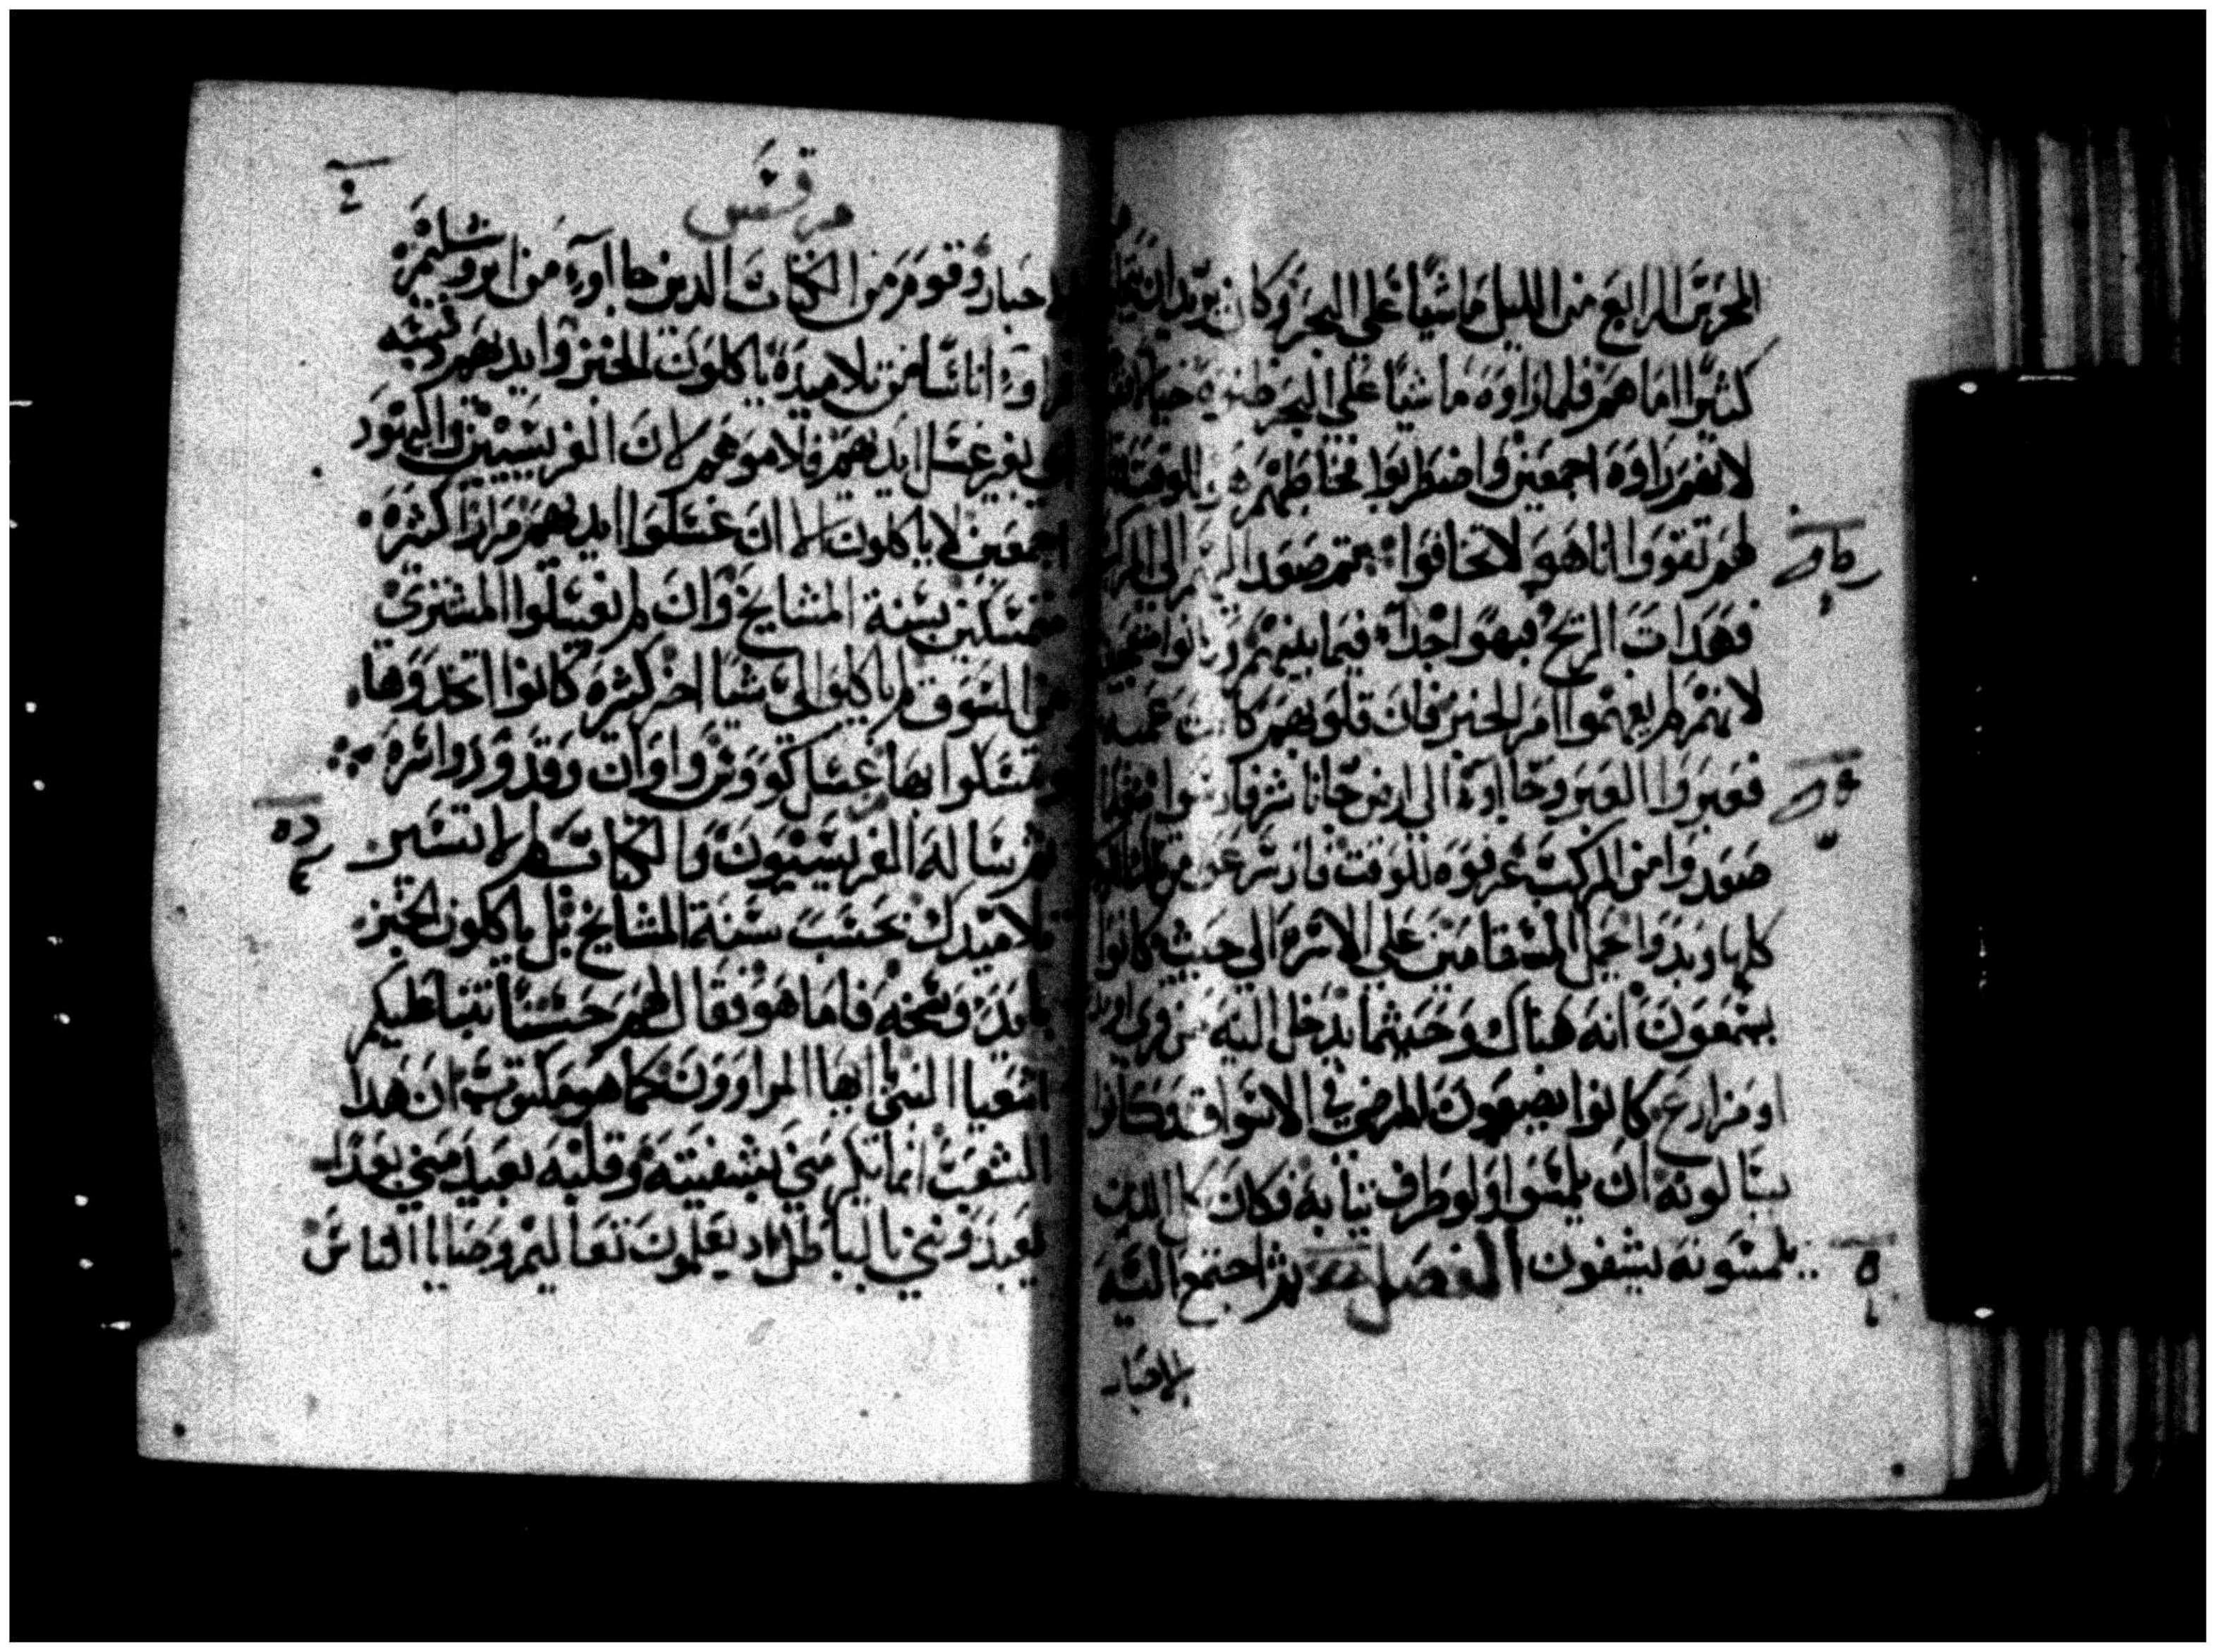 المحرس الرابع من الليل ماشيا على البحر وكان يريد ان
كثيرا اما هم فلما راوه ماشيا علي البحر ظنوه خيالا
لانهم راوه اجمعين واضطربوا فخاطبهم للوقت
لهم تقووا انا هو لا تخافوا ثم صعد اليهم الي المركب
فهدات الريح فبهتوا جدا فيما بينهم وكانوا
لانهم لم يفهموا امر الخبز فان قلوبهم كانت عميه
فعبروا العبر وجااوا الي ارض جاناشر فارسوا
صعدوا من المركب عرفوه للوقت
كلها وبدوا حمل المسقامين علي الاسره الي حيث كانوا
يسمعون انه هناك وحيثما يدخل اليه من قري او
او مزارع كانوا يضعون المرضي في الاسواق وكانوا
يسالونه ان يلمسوا ولو طرف ثيابه فكان كل الذين
يلمسونه يشفون الفصل ثم اجتمع اليه
الاحبار
مرقس
الاحبار وقوم من الكتاب الدين جااوا من ايروسليم
فراوا اناسا من تلاميده ياكلون الخبز وايديهم دنسه
اي بغير غسل ايديهم فلاموهم لان الفريسيين واليهود
اجمعين لا ياكلون الا ان غسلوا ايديهم مرارا كثيره
متمسكين بسنة المشايخ وان لم يغسلوا المشتري
من السوق لم ياكلوا الي شيا اخر كثيره كانوا اتخدوها
ليمسكوا بها غسل كووس واوان وقدور واسره
ثم ساله الفريسيون والكتاب لم لا تسير
تلاميدك بحسب سنة المشايخ بل ياكلون الخبز
بايد وسخه فاما هو فقال لهم حسنا تنبا عليكم
اشعيا النبي ايها المراوون كما هو مكتوب ان هدا
الشعب انما يكرمني بشفيته وقلبه بعيد مني بعدا
يعبدونني بالباطل اد يعلمون تعاليم وصايا الناس